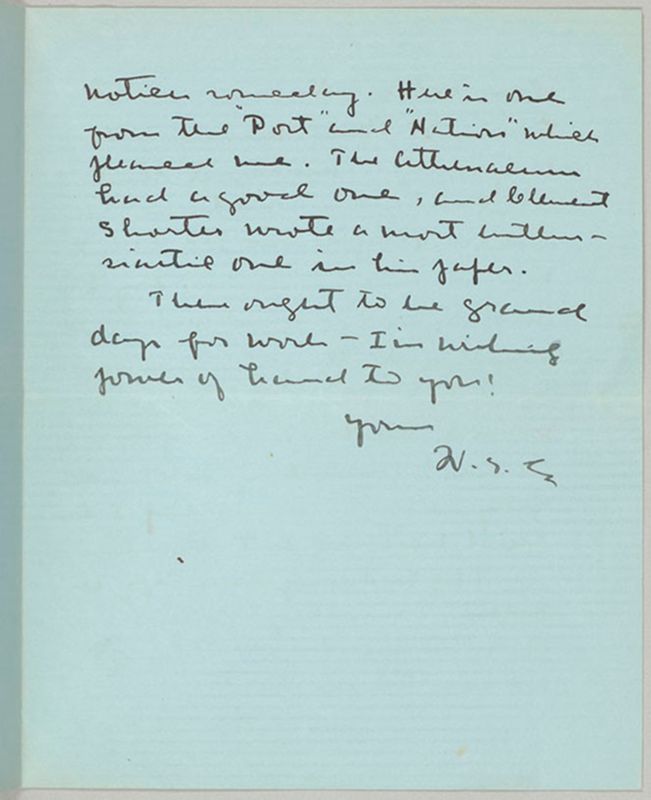 notices someday. Here is one
from the "Post" and "Nation" which
pleased me. The Athenaeum
had a good one, and Clement
Shorter wrote a most enthu-
siastic one in his paper.
These ought to be grand
days for work – I'm wishing
power of hand to you!
Yours
W. S. B.